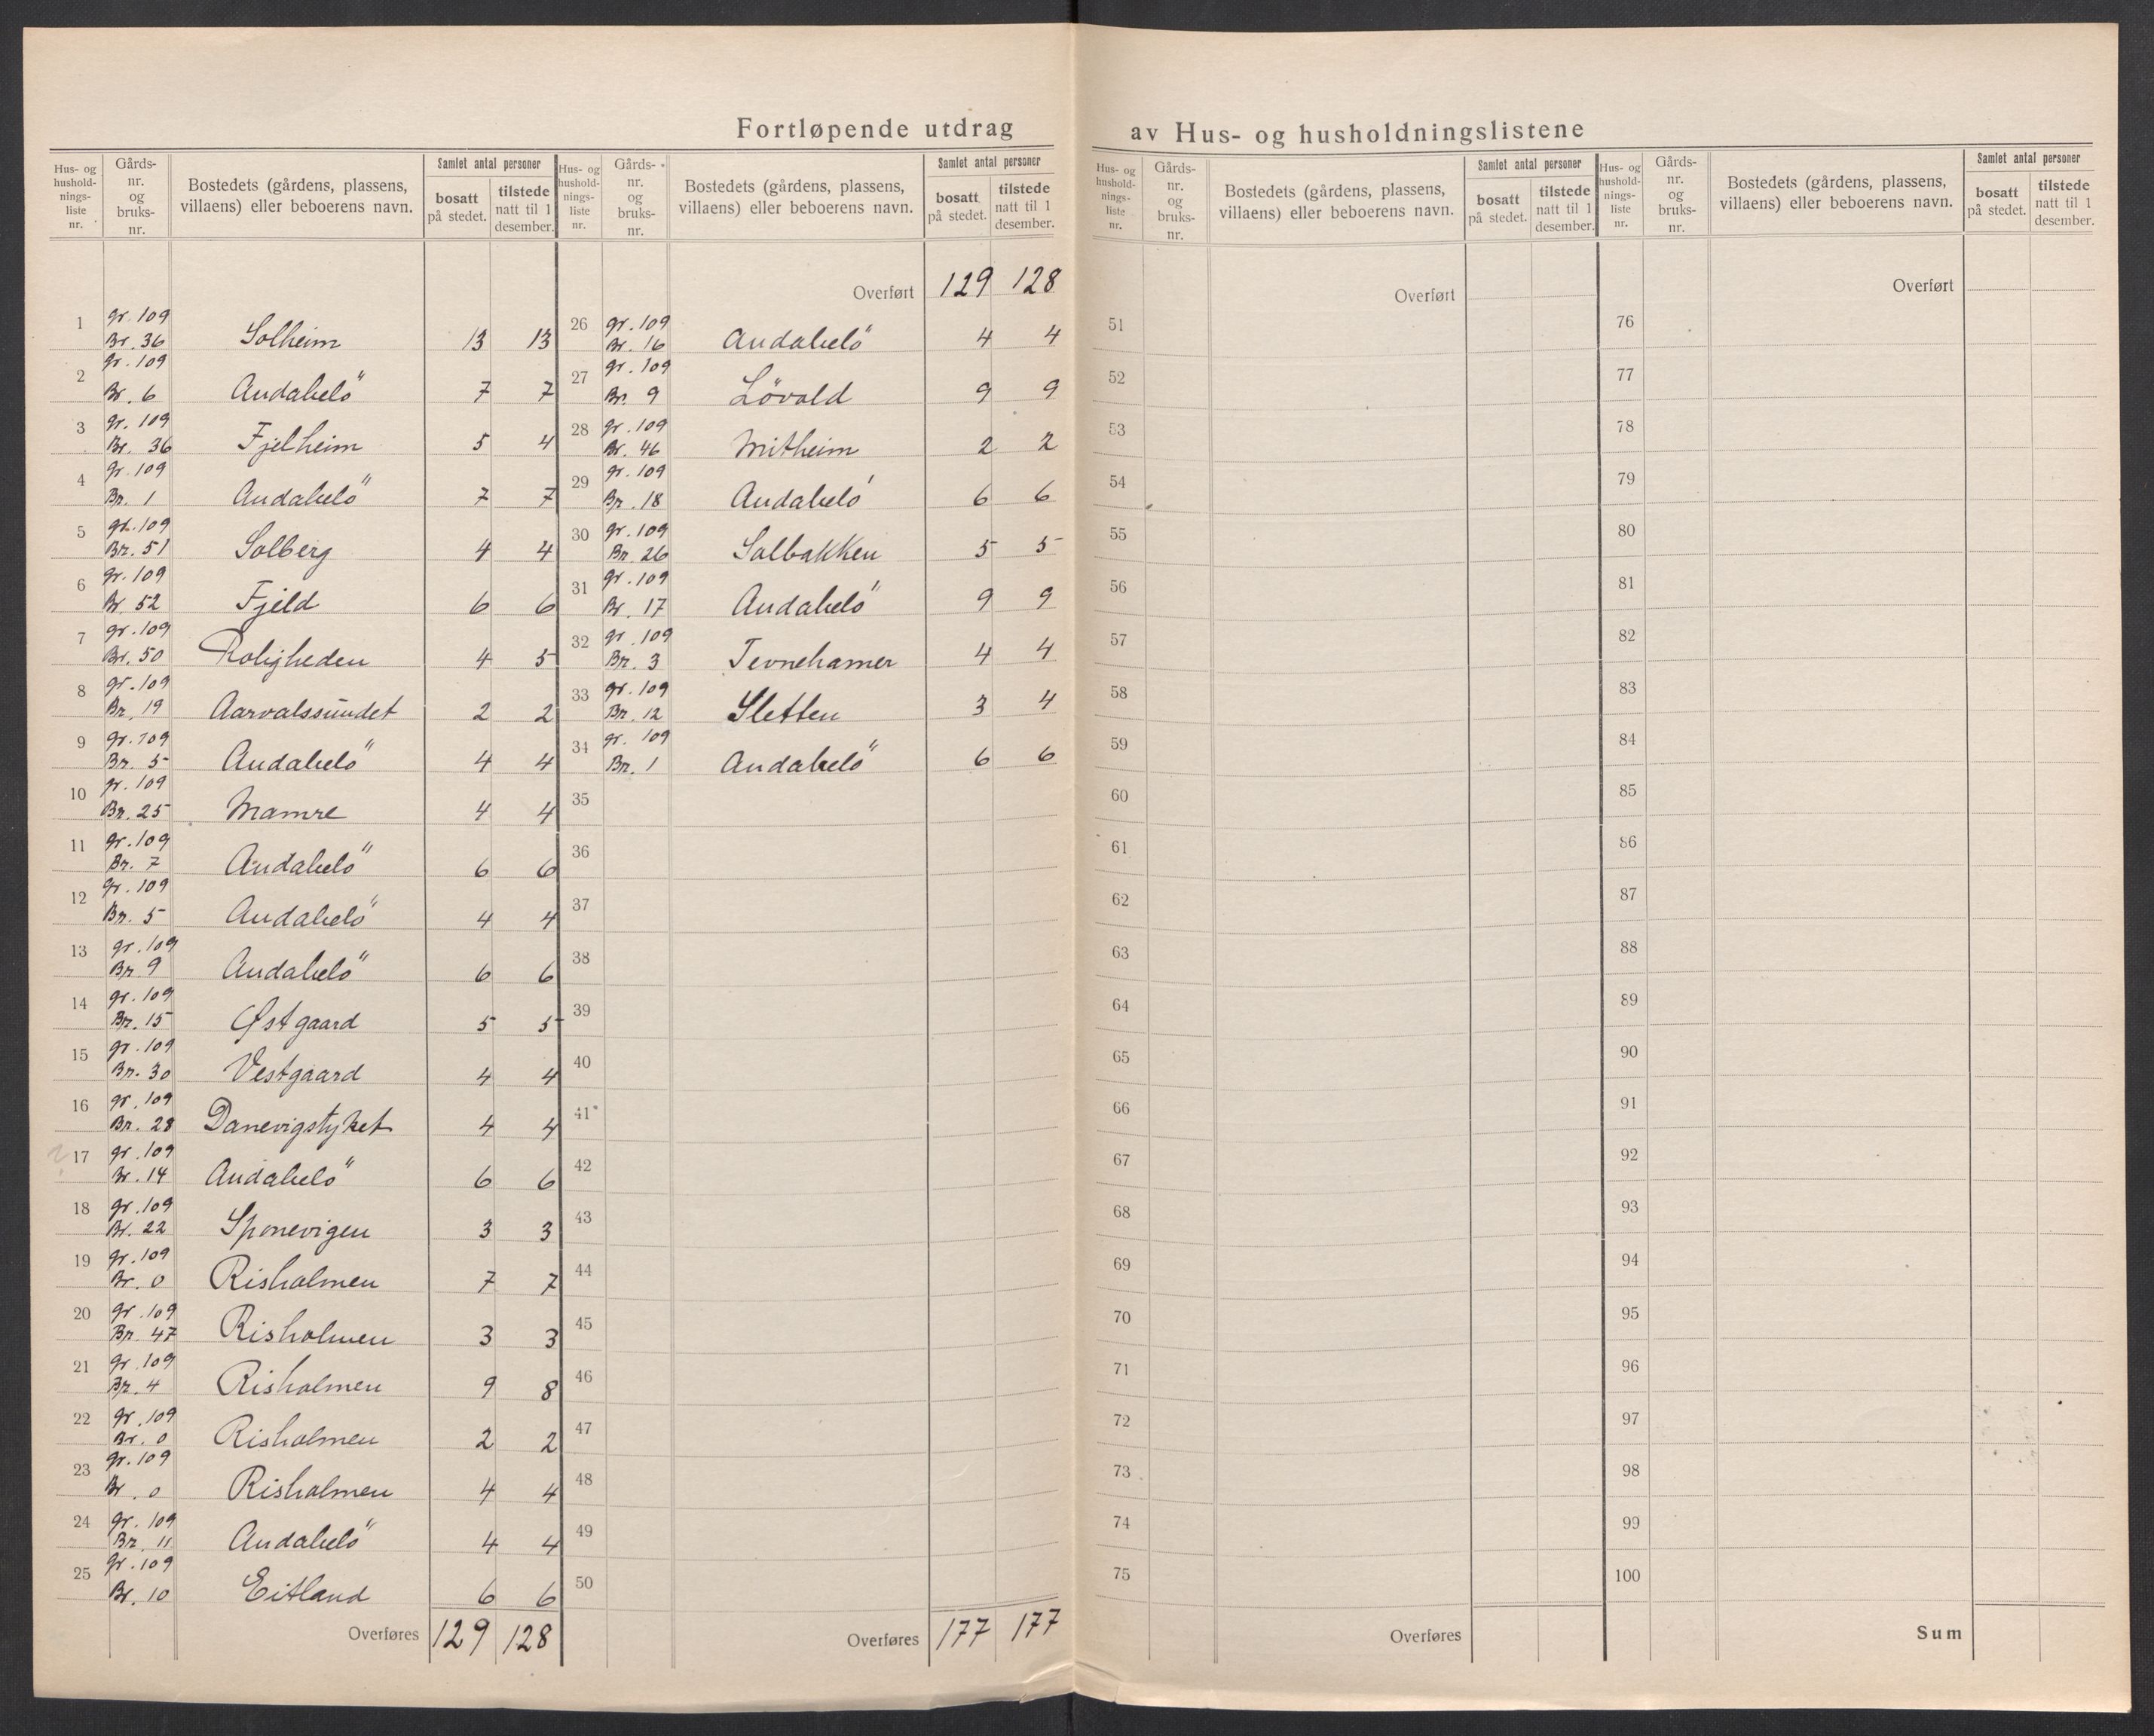 Fortløpende utdrag av Hus- og husholdningslistene
Hus- og hushold-nings-liste nr. Gårds-nr. og bruks-nr. Bostedets (gårdens, plassens, villaens) eller beboerens navn. Samlet antal personer bosatt på stedet. tilstede natt til 1 desember.
1 gr. 109 Br. 36 Solheim 13 13
2 gr. 109 Br. 6 Andabelö 7 7
3 gr. 109 Br. 36 Fjelheim 5 4
4 gr. 109 Br. 1 Andabelö 7 7
5 gr. 109 Br. 51 Solberg 4 4
6 gr. 109 Br. 52 Fjeld 6 6
7 gr. 109 Br. 50 Roligheden 4 5
8 gr. 109 Br. 19 Aarvalssundet 2 2
9 gr. 109 Br. 5 Andabelö 4 4
10 gr. 109 Br. 25 Mamre 4 4
11 gr. 109 Br. 7 Andabelö 6 6
12 gr. 109 Br. 5 Andabelö 4 4
13 gr. 109 Br. 9 Andabelö 6 6
14 gr. 109 Br. 15 Østgaard 5 5
15 gr. 109 Br. 30 Vestgaard 4 4
16 gr. 109 Br. 28 Danevigstyket 4 4
17 gr. 109 Br. 14 Andabelö 6 6
18 gr. 109 Br. 22 Sponevigen 3 3
19 gr. 109 Br. 0 Risholmen 7 7
20 gr. 109 Br. 47 Risholmen 3 3
21 gr. 109 Br. 4 Risholmen 9 8
22 gr. 109 Br. 0 Risholmen 2 2
23 gr. 109 Br. 0 Risholmen 4 4
24 gr. 109 Br. 11 Andabelö 4 4
25 gr. 109 Br. 10 Eitland 6 6
Overføres 129 128
Hus- og hushold-nings-liste nr. Gårds-nr. og bruks-nr. Bostedets (gårdens, plassens, villaens) eller beboerens navn. Samlet antal personer bosatt på stedet. tilstede natt til 1 desember.
Overført 129 128
26 gr. 109 Br. 16 Andabelö 4 4
27 gr. 109 Br. 9 Lövold 9 9
28 gr. 109 Br. 46 Mitheim 2 2
29 gr. 109 Br. 18 Andabelö 6 6
30 gr. 109 Br. 26 Solbakken 5 5
31 gr. 109 Br. 17 Andabelö 9 9
32 gr. 109 Br. 3 Tevnehamer 4 4
33 gr. 109 Br. 12 Sletten 3 4
34 gr. 109 Br. 1 Andabelö 6 6
35
36
37
38
39
40
41
42
43
44
45
46
47
48
49
50
Overføres 177 177
Hus- og hushold-nings-liste nr. Gårds-nr. og bruks-nr. Bostedets (gårdens, plassens, villaens) eller beboerens navn. Samlet antal personer bosatt på stedet. tilstede natt til 1 desember.
Overført
51
52
53
54
55
56
57
58
59
60
61
62
63
64
65
66
67
68
69
70
71
72
73
74
75
Overføres
Hus- og hushold-nings-liste nr. Gårds-nr. og bruks-nr. Bostedets (gårdens, plassens, villaens) eller beboerens navn. Samlet antal personer bosatt på stedet. tilstede natt til 1 desember.
Overført
76
77
78
79
80
81
82
83
84
85
86
87
88
89
90
91
92
93
94
95
96
97
98
99
100
Sum